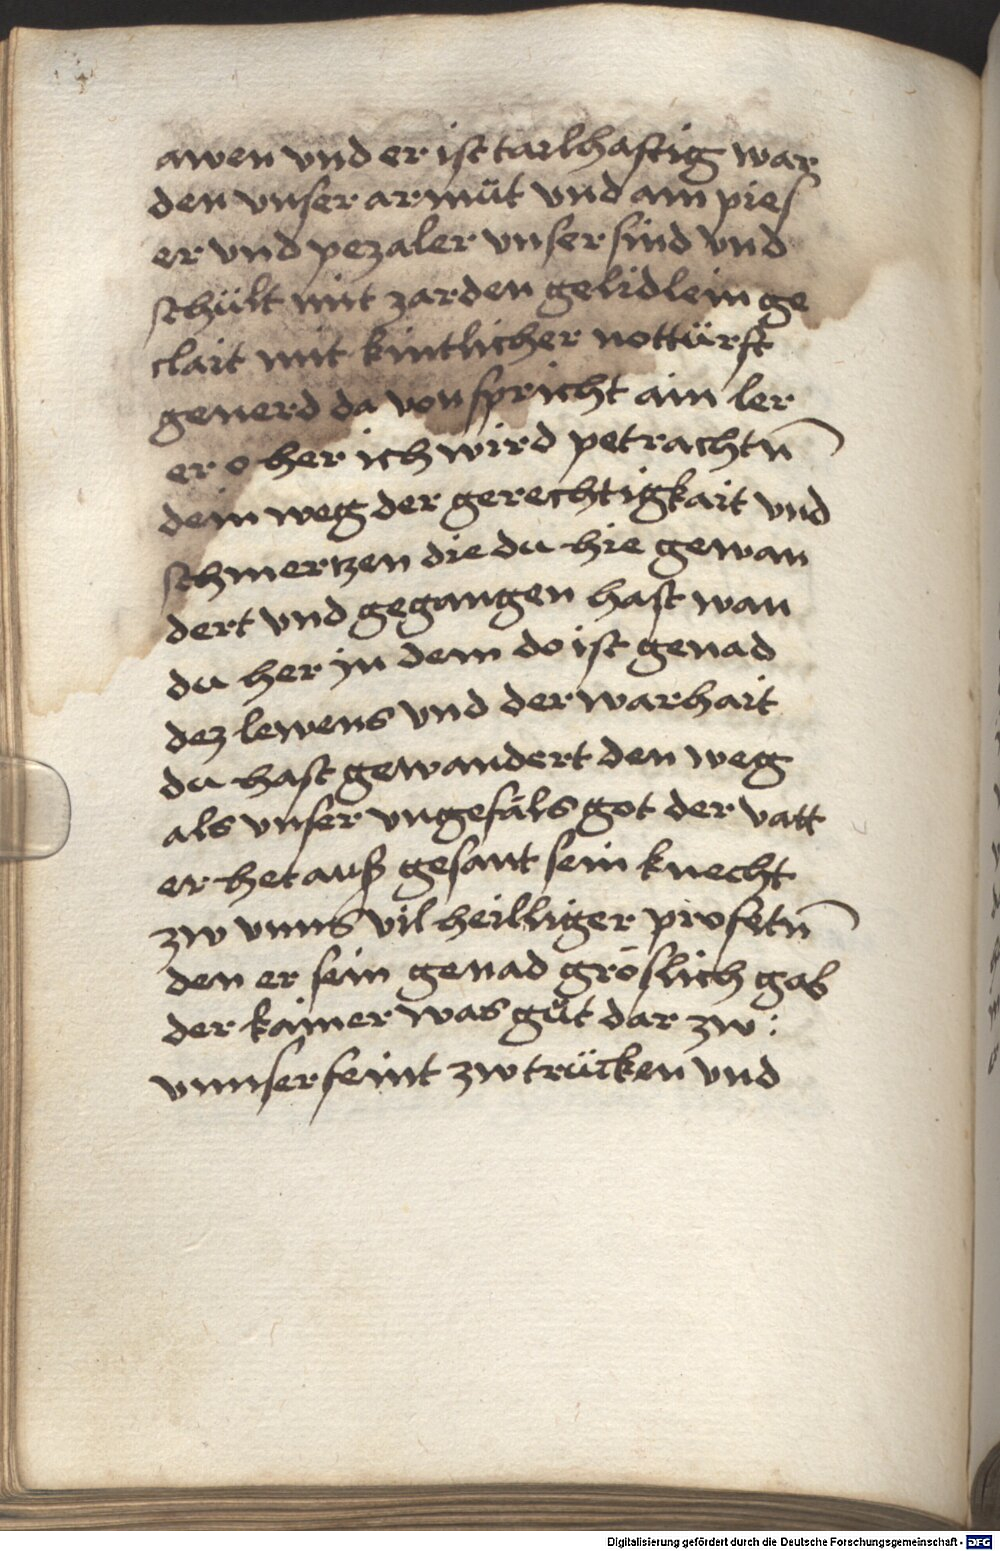 awen vnd er ist tailhaftig war
den vnser armüt vnd ain pies
er vnd pezaler vnser sind vnd
schült mit zarden gelidlein ge
clait mit kintlicher nottürft
generd da von spricht ain ler
er o her ich wird petrachtn̄
dein weg der gerechtigkait vnd
schmertzen die du hie gewan
dert vnd gegangen hast wan
du her in dem do ist genad
dez lewens vnd der warhait
du hast gewandert den weg
als vnser vngefäls got der vatt
er het auß gesant sein knecht
zw vnns vil heilliger profetn̄
den er sein genad gröslich gab
der kainer was güt dar zw :
vnnser feint zw trücken vnd
Digitalisierung gefördert durch die Deutsche Forschungsgemeinschaft - DFG